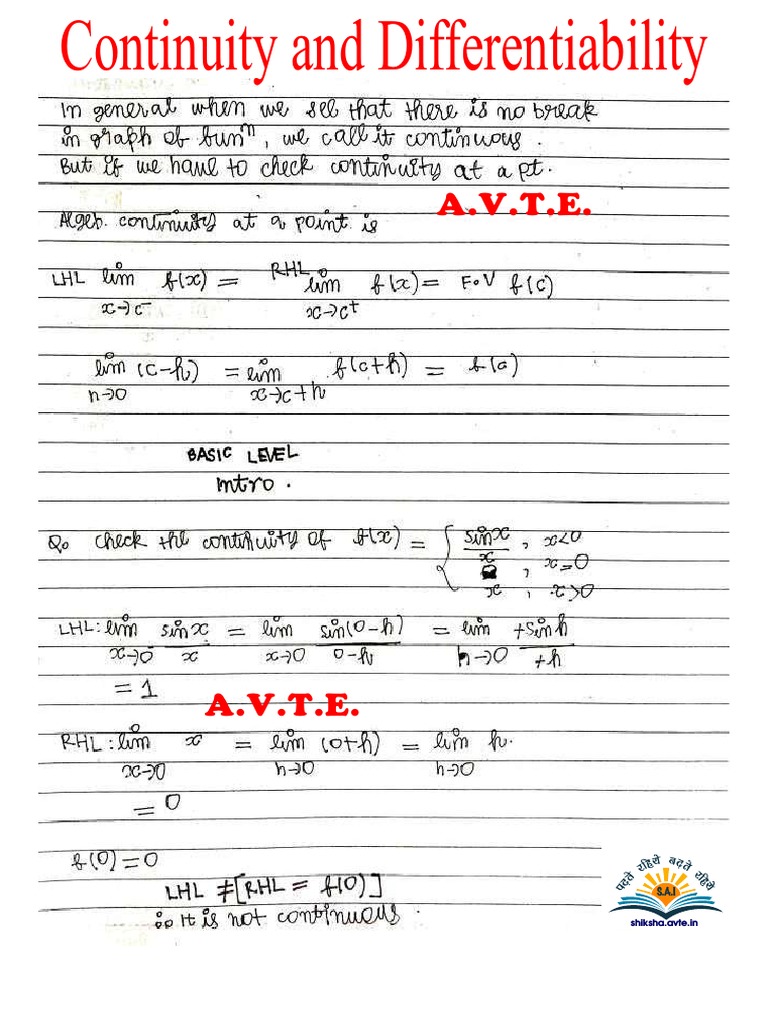 Continuity and Differentiability
In general when we see that there is no break
in graph of funⁿ, we call it continuous.
But if we have to check continuity at a pt.
A.V.T.E.
Algeb. continuity at a point is
LHL lim f(x) = RHL lim f(x) = F.V f(c)
x→c⁻ x→c⁺
lim (c-h) = lim f(c+h) = f(c)
h→0 x→c+h
BASIC LEVEL
Intro.
Q. check the continuity of f(x) = { sinx/x , x<0
, x=0
x , x>0
LHL: lim sinx/x = lim sin(0-h)/0-h = lim +sinh/+h
x→0⁻ x→0 h→0
= 1
A.V.T.E.
RHL: lim x = lim (0+h) = lim h.
x→0 h→0 h→0
= 0
f(0) = 0
LHL ≠ [RHL = f(0)]
∴ It is not continuous.
पढ़ते रहिये बढ़ते रहिये
S.A.I
shiksha.avte.in